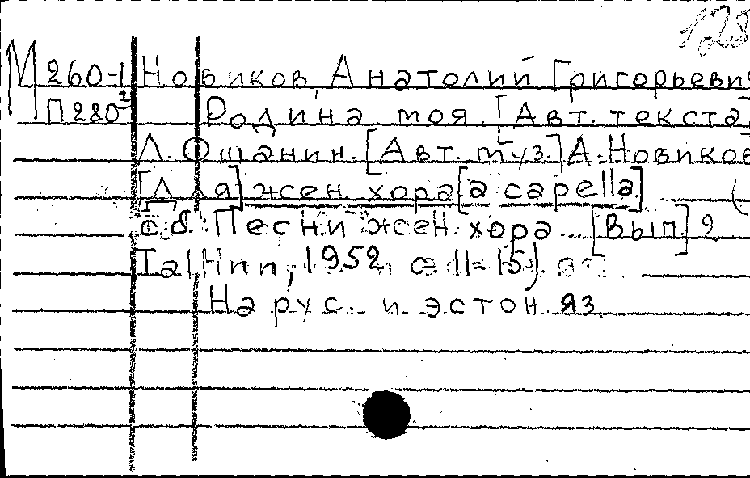 128
М 260-1 Новиков, Анатолий Григорьевич
П220 Родина моя. [Авт. текста]
Л. Ошанин. [Авт. муз.] А. Новиков
[Для] жен. хора [a capella]
Сб. Песни жен. хора... [Вып.] 2
1952
На рус. и эстон. яз.